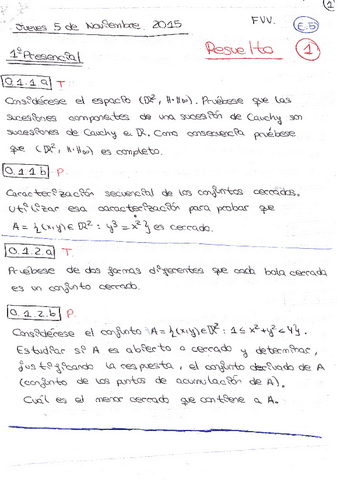 1
Jueves 5 de Noviembre 2015 F.V.V. E.5
1º Presencial Resuelto 1
0.1.1a T.
Considérese el espacio (ℝ², ||·||∞). Pruébese que las
sucesiones componentes de una sucesión de Cauchy son
sucesiones de Cauchy en ℝ. Como consecuencia pruébese
que (ℝ², ||·||∞) es completo.
0.1.1b P.
Caracterización secuencial de los conjuntos cerrados.
Utilizar esa caracterización para probar que
A = {(x,y) ∈ ℝ² : y³ = x²} es cerrado.
0.1.2.a T.
Pruébese de dos formas diferentes que cada bola cerrada
es un conjunto cerrado.
0.1.2.b P.
Considérese el conjunto A = {(x,y) ∈ ℝ² : 1 ≤ x² + y² < 4}.
Estudiar si A es abierto o cerrado y determinar,
justificando la respuesta, el conjunto derivado de A
(conjunto de los puntos de acumulación de A).
Cuál es el menor cerrado que contiene a A.